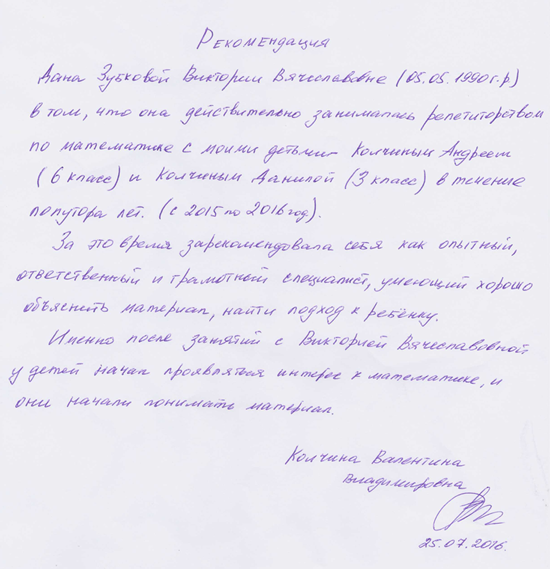 Рекомендация
Дана Зубковой Виктории Вячеславовне (05.05.1990г.р)
в том, что она действительно занималась репетиторством
по математике с моими детьми- Колчиным Андреем
(6 класс) и Колчиным Данилой (3 класс) в течение
полутора лет. (с 2015 по 2016 год).
За это время зарекомендовала себя как опытный,
ответственный и грамотный специалист, умеющий хорошо
объяснить материал, найти подход к ребёнку.
Именно после занятий с Викторией Вячеславовной
у детей начал проявляться интерес к математике, и
они начали понимать материал.
Колчина Валентина
Владимировна
25.07.2016.